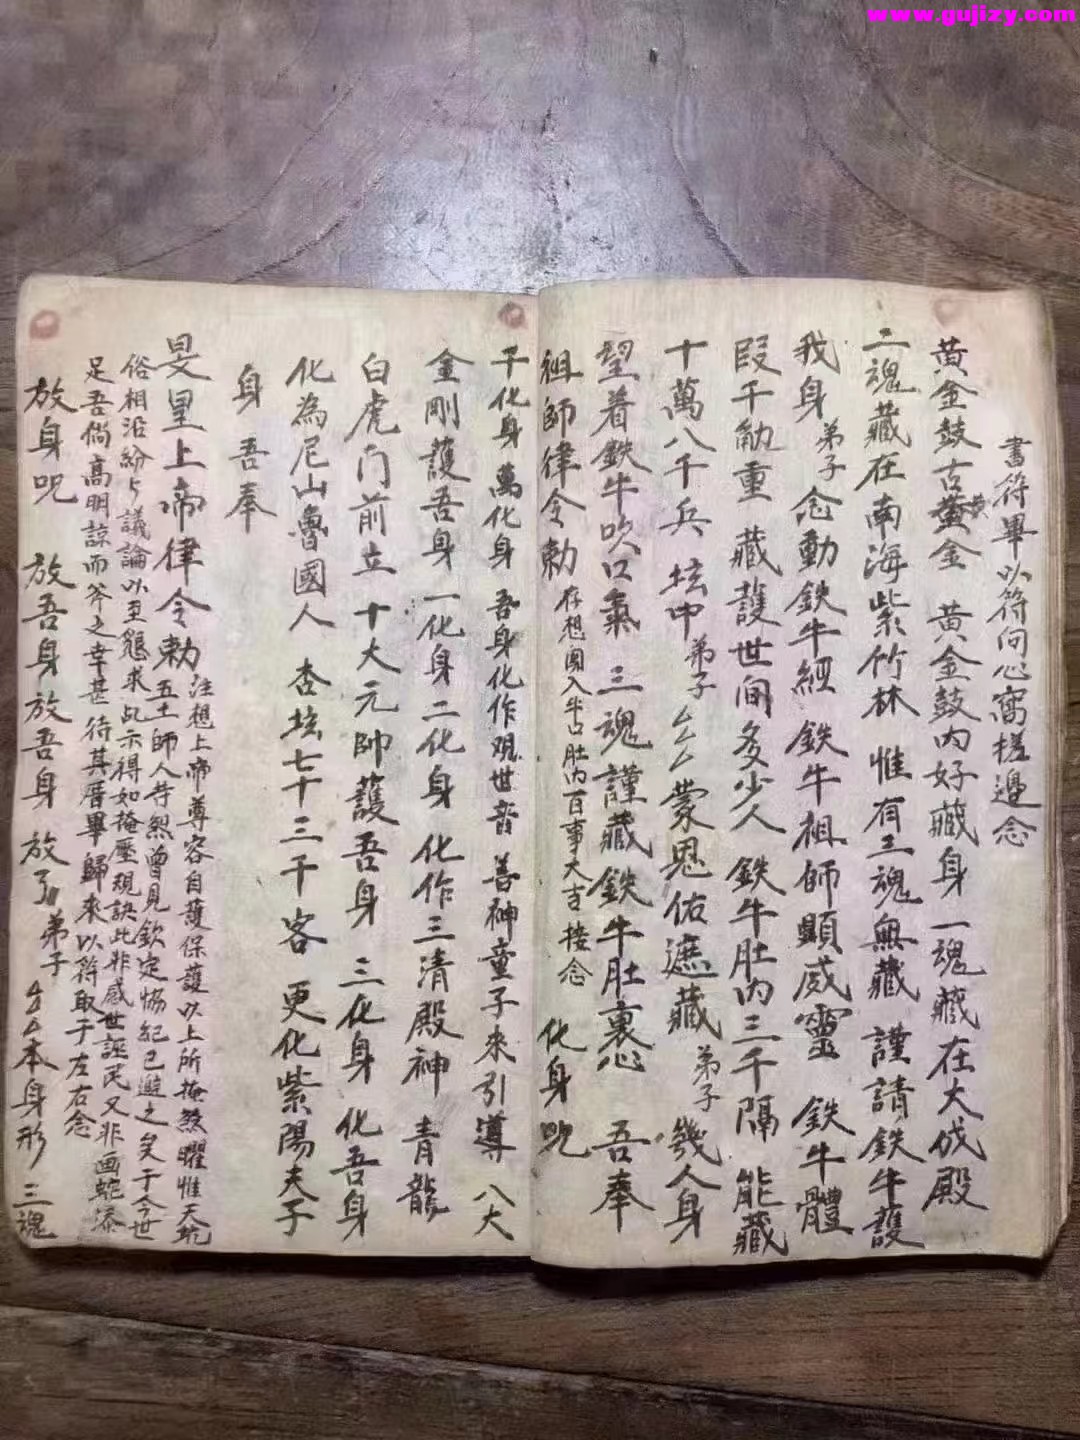 www.gujizy.com
書符畢以符向心窩搓邊念
黃金鼓古黃金 黃金鼓内好藏身一魂藏在大成殿
二魂藏在南海紫竹林 惟有三魂無藏 謹請鉄牛護
我身弟子念動鉄牛經 鉄牛祖師顯威靈 鉄牛體
段千觔重 藏護世间多少人 鉄牛肚内三千隔 能藏
十萬八千兵 坛中弟子厶厶蒙恩佑遮藏弟子幾人身
望着鉄牛吹口氣 三魂謹藏鉄牛肚裏心 吾奉
祖師律令勅 存想囡入牛口肚内百事大吉接念 化身咒
千化身萬化身 吾身化作观世音 善神童子來引導 八大
金剛護吾身 一化身二化身 化作三清殿神 青龍
白虎门前立 十大元帥護吾身 三化身 化吾身
化為尼山魯國人 杏坛七十三千客 更化紫陽夫子
身 吾奉
昊里上啼律令勅 注想上啼尊容自護保護以上所掩煞曜惟天乾
五土師人苻煞曾見欽定恊紀已避之矣于今世
俗相沿紛々議論以至懇來乩示得如掩壓現訣此非感世誣民又非画蛇添
足吾倘高明諒而斧之幸甚 待其厝畢歸來以符取于左右念
放身咒 放吾身放吾身 放了弟子厶厶本身形 三魂